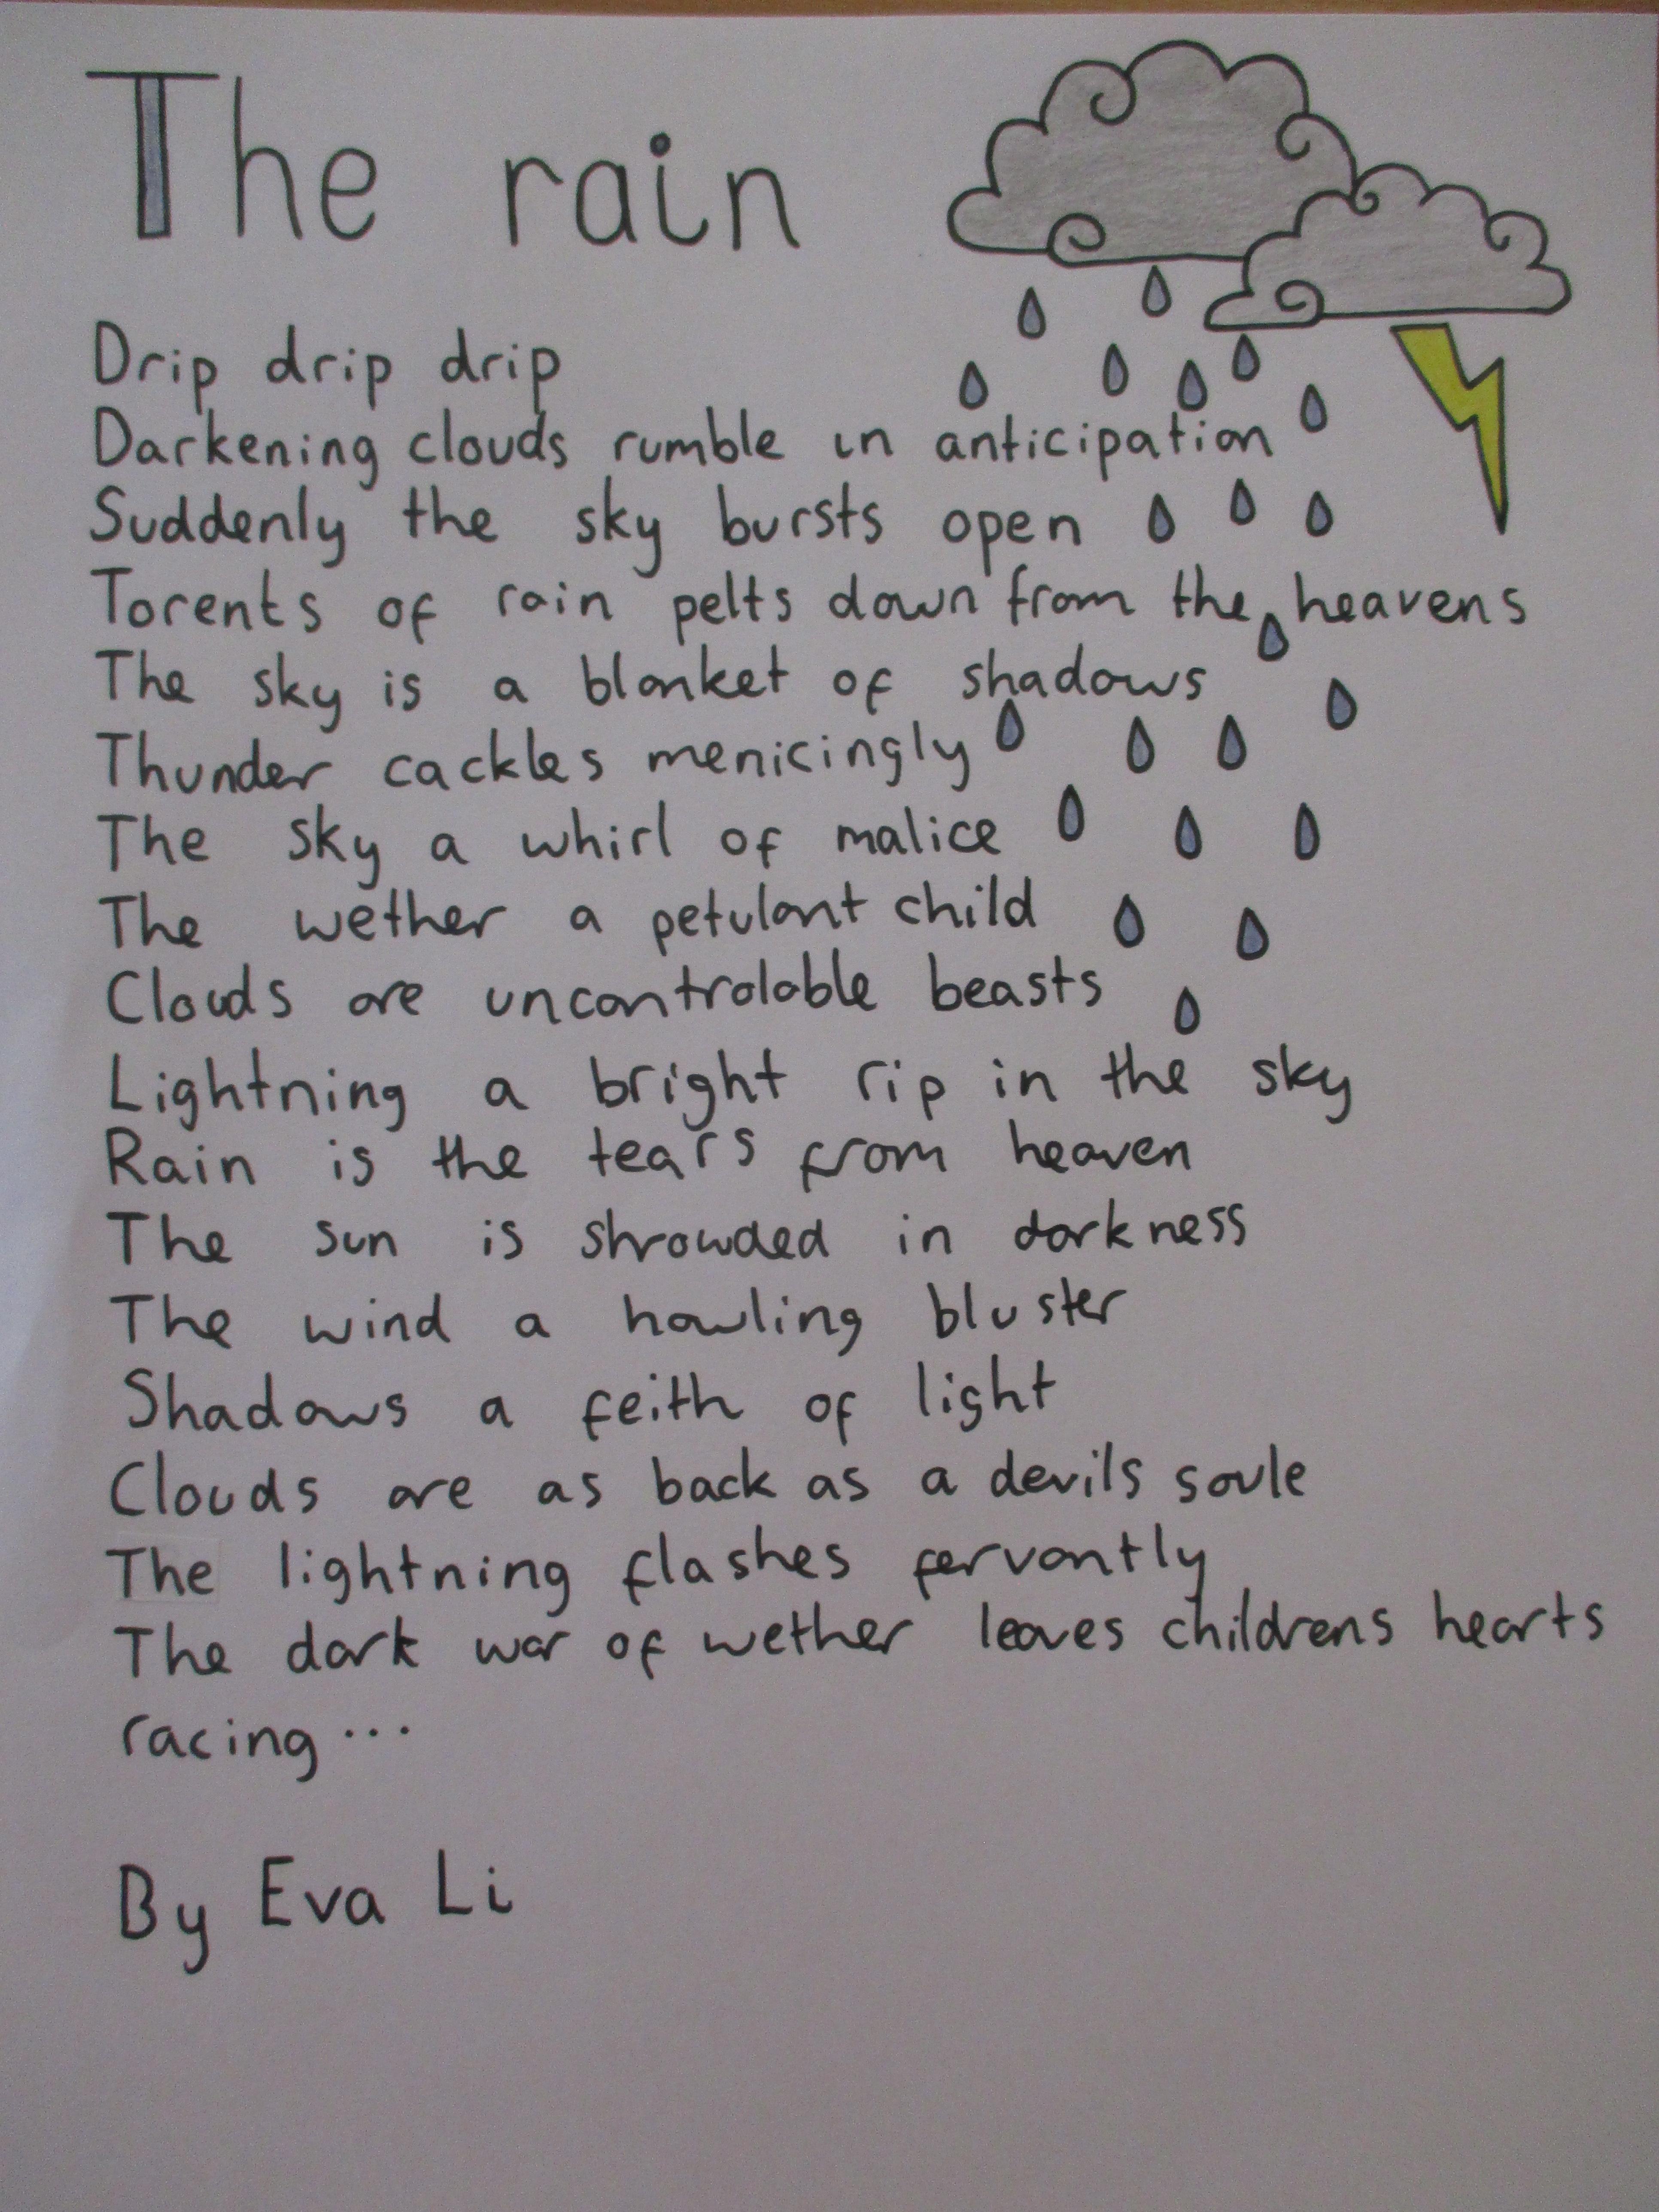 The rain
Drip drip drip
Darkening clouds rumble in anticipation
Suddenly the sky bursts open
Torents of rain pelts down from the heavens
The sky is a blanket of shadows
Thunder cackles menicingly
The sky a whirl of malice
The wether a petulant child
Clouds are uncontrolable beasts
Lightning a bright rip in the sky
Rain is the tears from heaven
The sun is shrowded in darkness
The wind a howling bluster
Shadows a feith of light
Clouds are as back as a devils soule
The lightning flashes fervantly
The dark war of wether leaves childrens hearts
racing...
By Eva Li